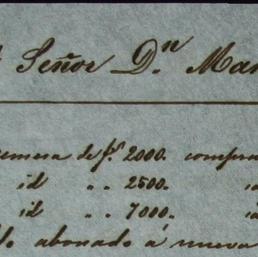 Señor Dn. Man
remesa de ps. 2000. compra
id " " 2500.
id " " 7000.
abonado á nueva